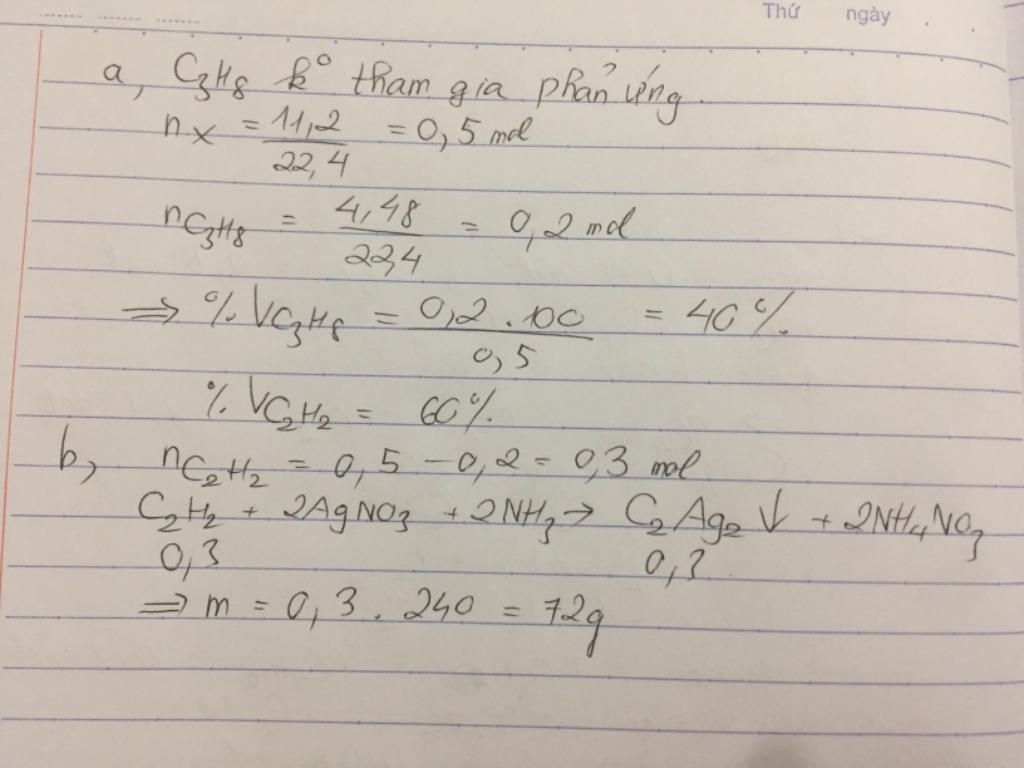 Thứ ngày
a, C₃H₈ k° tham gia phản ứng.
nx = 11,2 / 22,4 = 0,5 mol
nC₃H₈ = 4,48 / 22,4 = 0,2 mol
⇒ % VC₃H₈ = 0,2 . 100 / 0,5 = 40%.
% VC₂H₂ = 60%.
b, nC₂H₂ = 0,5 - 0,2 = 0,3 mol
C₂H₂ + 2AgNO₃ + 2NH₃ → C₂Ag₂ ↓ + 2NH₄NO₃
0,3 0,3
⇒ m = 0,3 . 240 = 72g